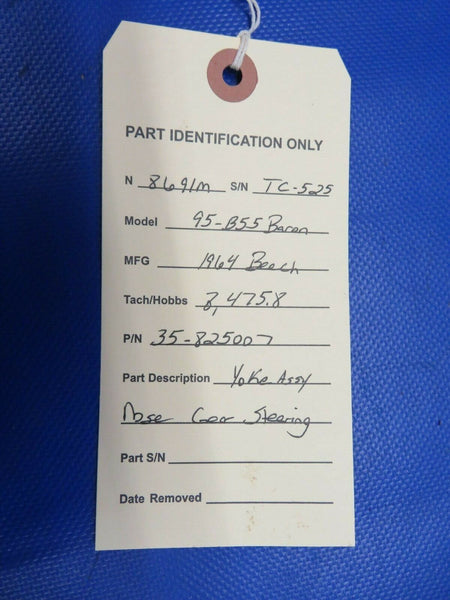 PART IDENTIFICATION ONLY
N 8691M S/N TC-525
Model 95-B55 Baron
MFG 1964 Beech
Tach/Hobbs 3,475.8
P/N 35-825007
Part Description Yoke Assy
Nose Gear Steering
Part S/N
Date Removed